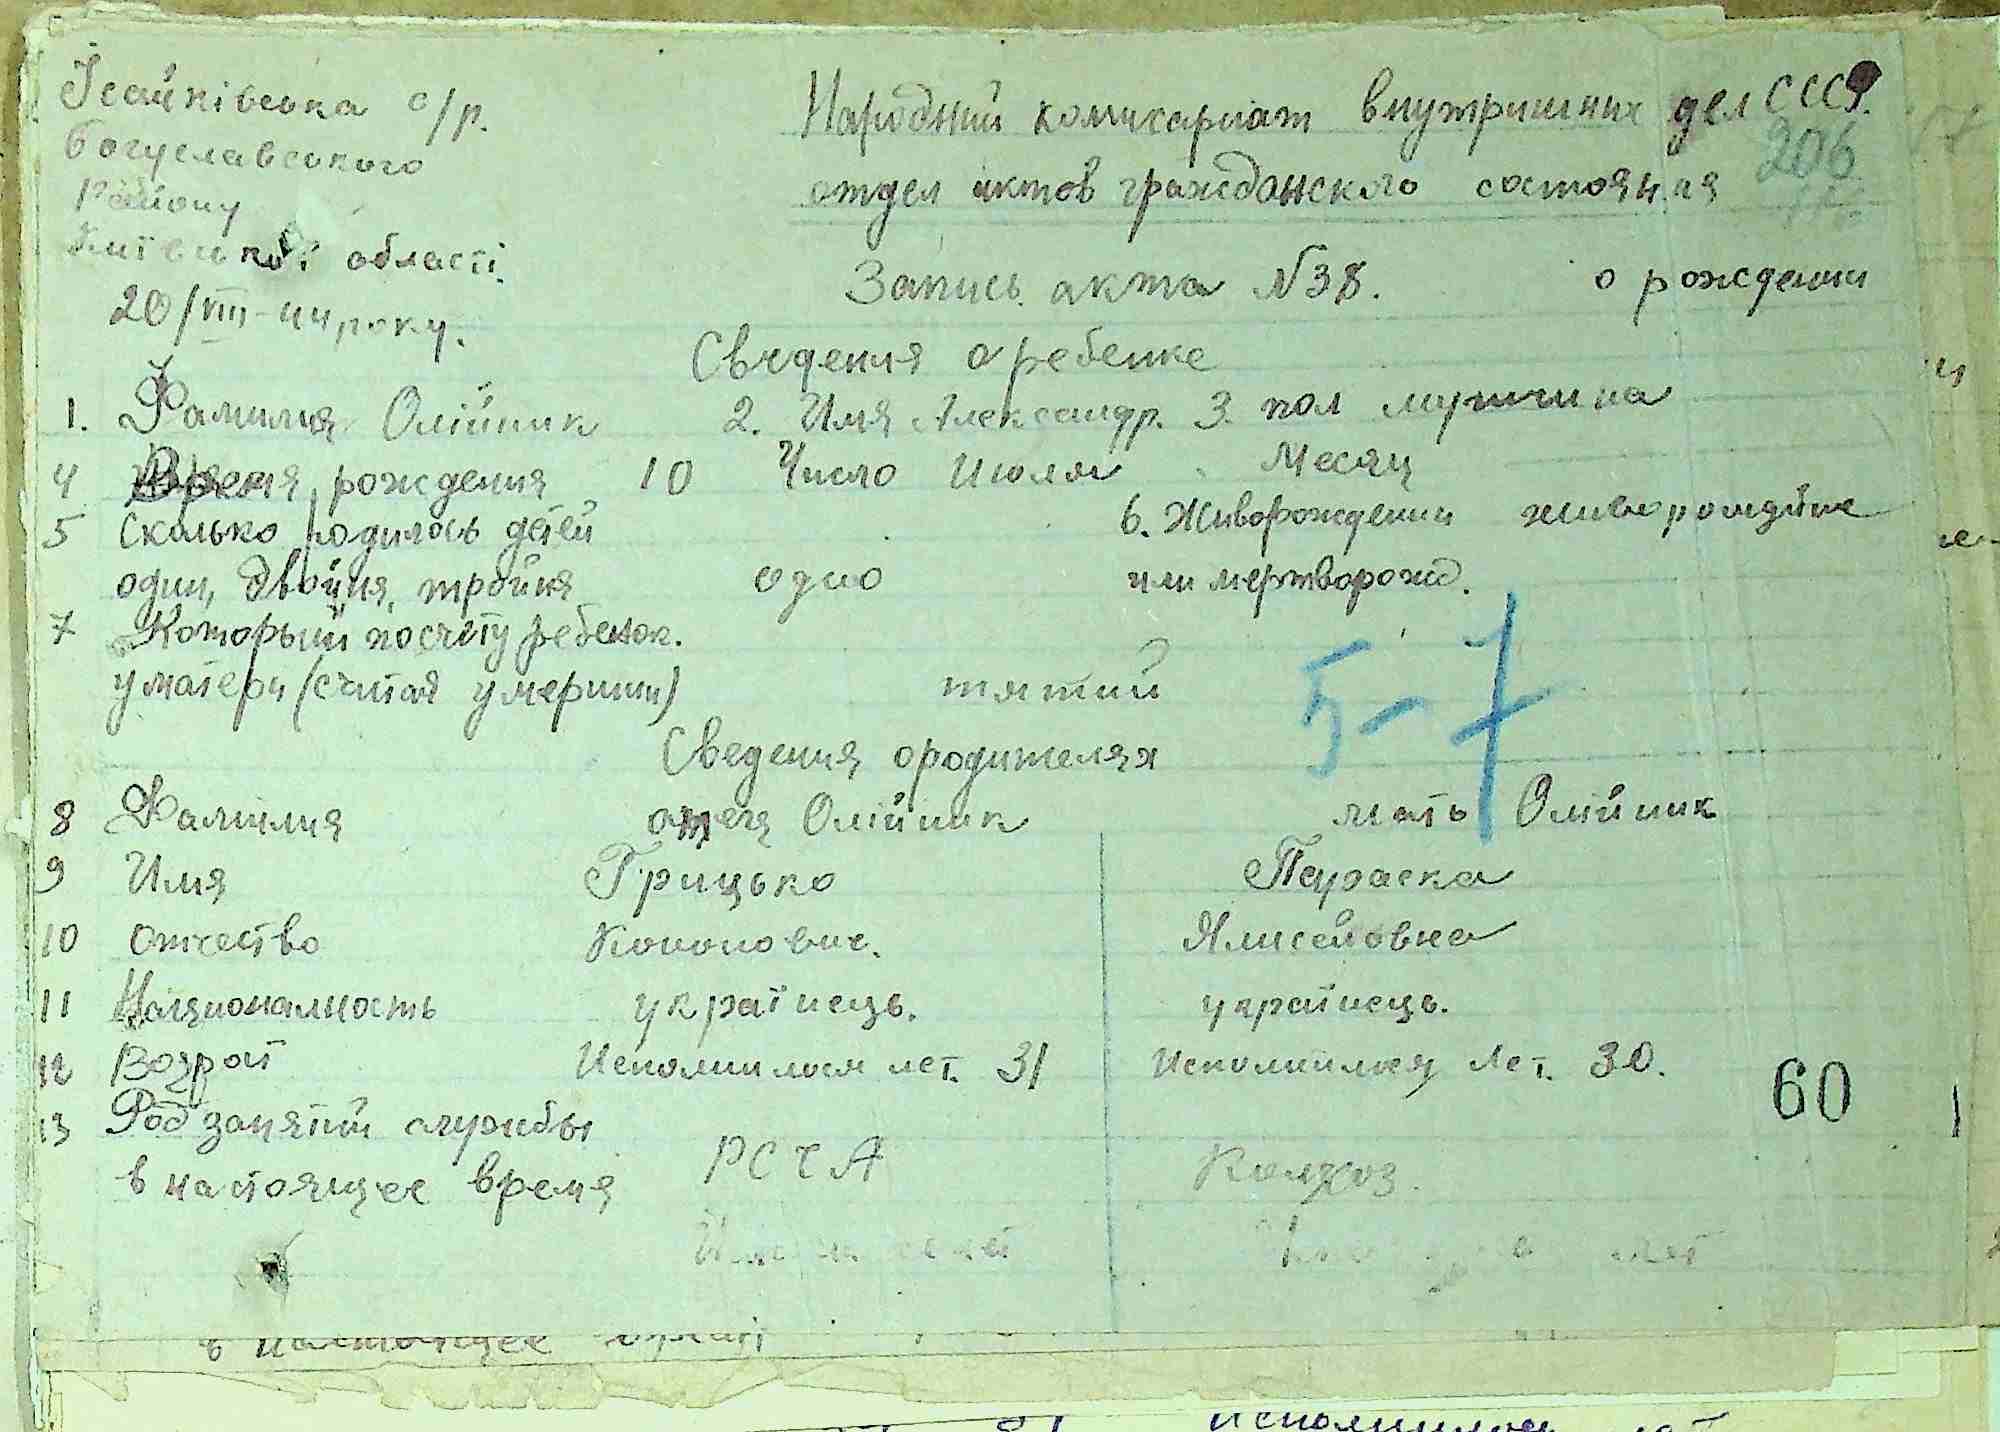 Ісайківська с/р.
Богуславського
Району
Київської області.
20/VIII-44 року.
Народний комисариат внутришних дел СССР.
206
отдел актов гражданского состояния
Запись акта N38. о рождении
Сведения о ребенке
1. Фамилия Олійник 2. Имя Александр. 3. пол мужчина
4 Время рождения 10 Число Июля Месяц
5 Сколько родилось детей 6. Живорождении
один, двойня, тройня одно или мертворожд.
7 Который по счету ребенок.
у матери (считая умерших) пятий
5-7
Сведения о родителях
8 Фамилия отец Олійник мать Олійник
9 Имя Грицько Параска
10 отчество Кононович. Ялисейовна
11 Национальность українець. українець.
12 Возраст Исполнилося лет. 31 Исполнилося лет. 30.
60
13 Род занятий службы
в настоящее время РСЧА Колхоз.
в настоящее время
31 исполнилось лет